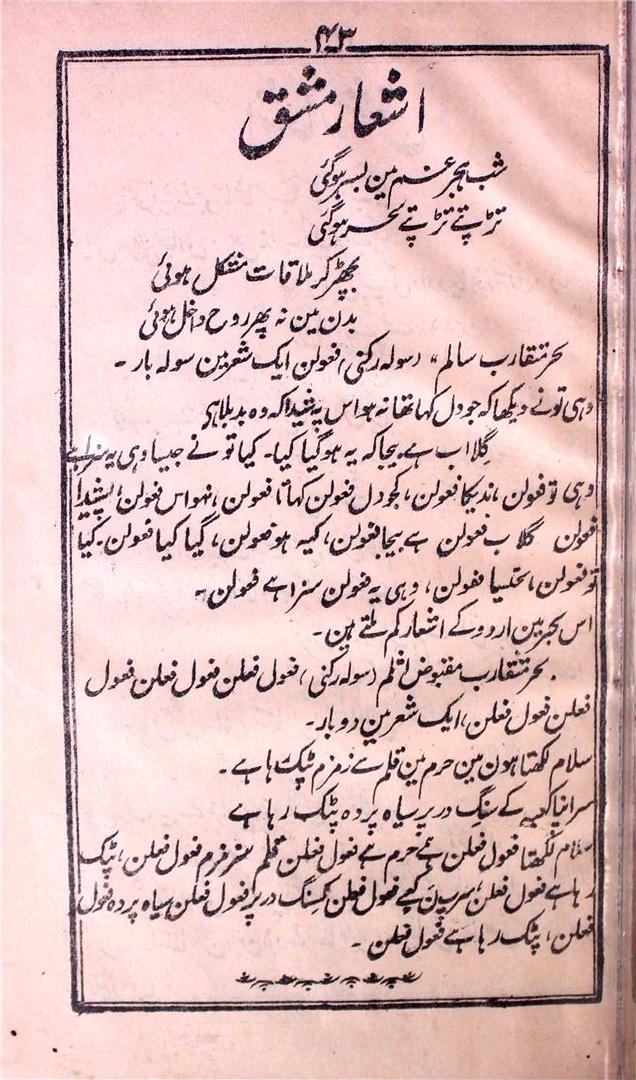 ۴۳
اشعار مشق
شب ہجر غم مین بسر ہوگئی
تڑپتے تڑپتے سحر ہوگئی
بچھڑ کر ملاقات مشکل ہوئی
بدن مین نہ پھر روح داخل ہوئی
بحر متقارب سالم، (سولہ رکنی) فعولن ایک شعر مین سولہ بار ۔
وہی تونے دیکھا کہ جو دل کہا تھا نہ ہو اس پہ شیدا کہ وہ بد بلا ہی
گلا اب ہے بیجا کہ یہ ہو گیا کیا۔ کیا تو نے جیسا وہی یہ سزا ہے
وہی تو فعولن، ندیکا فعولن، کجو دل فعولن کہاتا فعولن، نہو اس فعولن، پشیدا
فعولن گلا ب فعولن ہے بیجا فعولن، کیہ ہو فعولن، گیا کیا فعولن۔ کیا
تو فعولن، وہی یہ فعولن سزا ہے فعولن ۔
اس بحر مین اردو کے اشعار کم ملتے ہین۔
بحر متقارب مقبوض اثلم (سولہ رکنی) فعول فعلن فعول فعلن فعول
فعلن فعول فعلن، ایک شعر مین دو بار۔
سلام لکھتا ہون مین حرم مین قلم سے زمزم ٹپک رہا ہے ۔
سر اپنا کعبہ کے سنگ در پر سیاہ پردہ پٹک رہا ہے
سلام لکھتا فعول فعلن حرم مے فعول فعلن قلم سزمزم فعول فعلن، ٹپک
رہا ہے فعول فعلن، سرپن کعبے فعول فعلن کسنگ در پر فعول فعلن سیاہ پردہ فعول
فعلن، پٹک رہا ہے فعول فعلن ۔